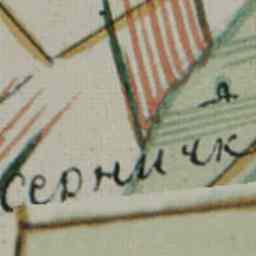 я
серничк